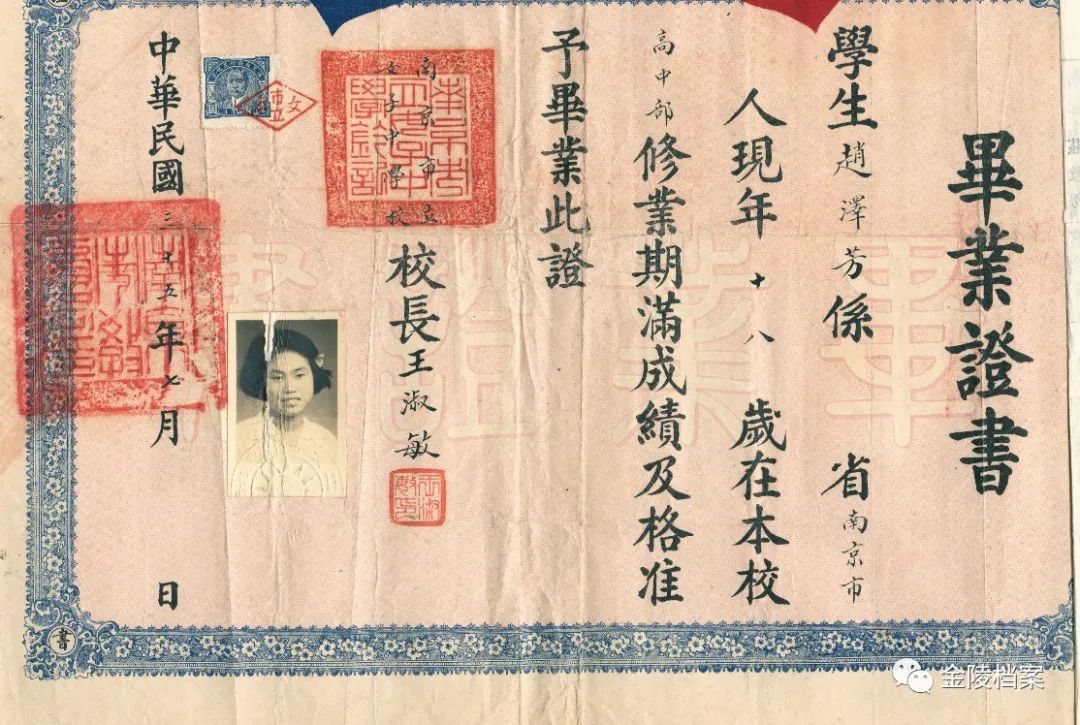 畢業證書
學生趙澤芳係 省南京市
人現年十八歲在本校
高中部修業期滿成績及格准
予畢業此證
南京市立
女子中學校
校長王淑敏
中華民國三十五年七月 日
畢業證書
書
金陵档案